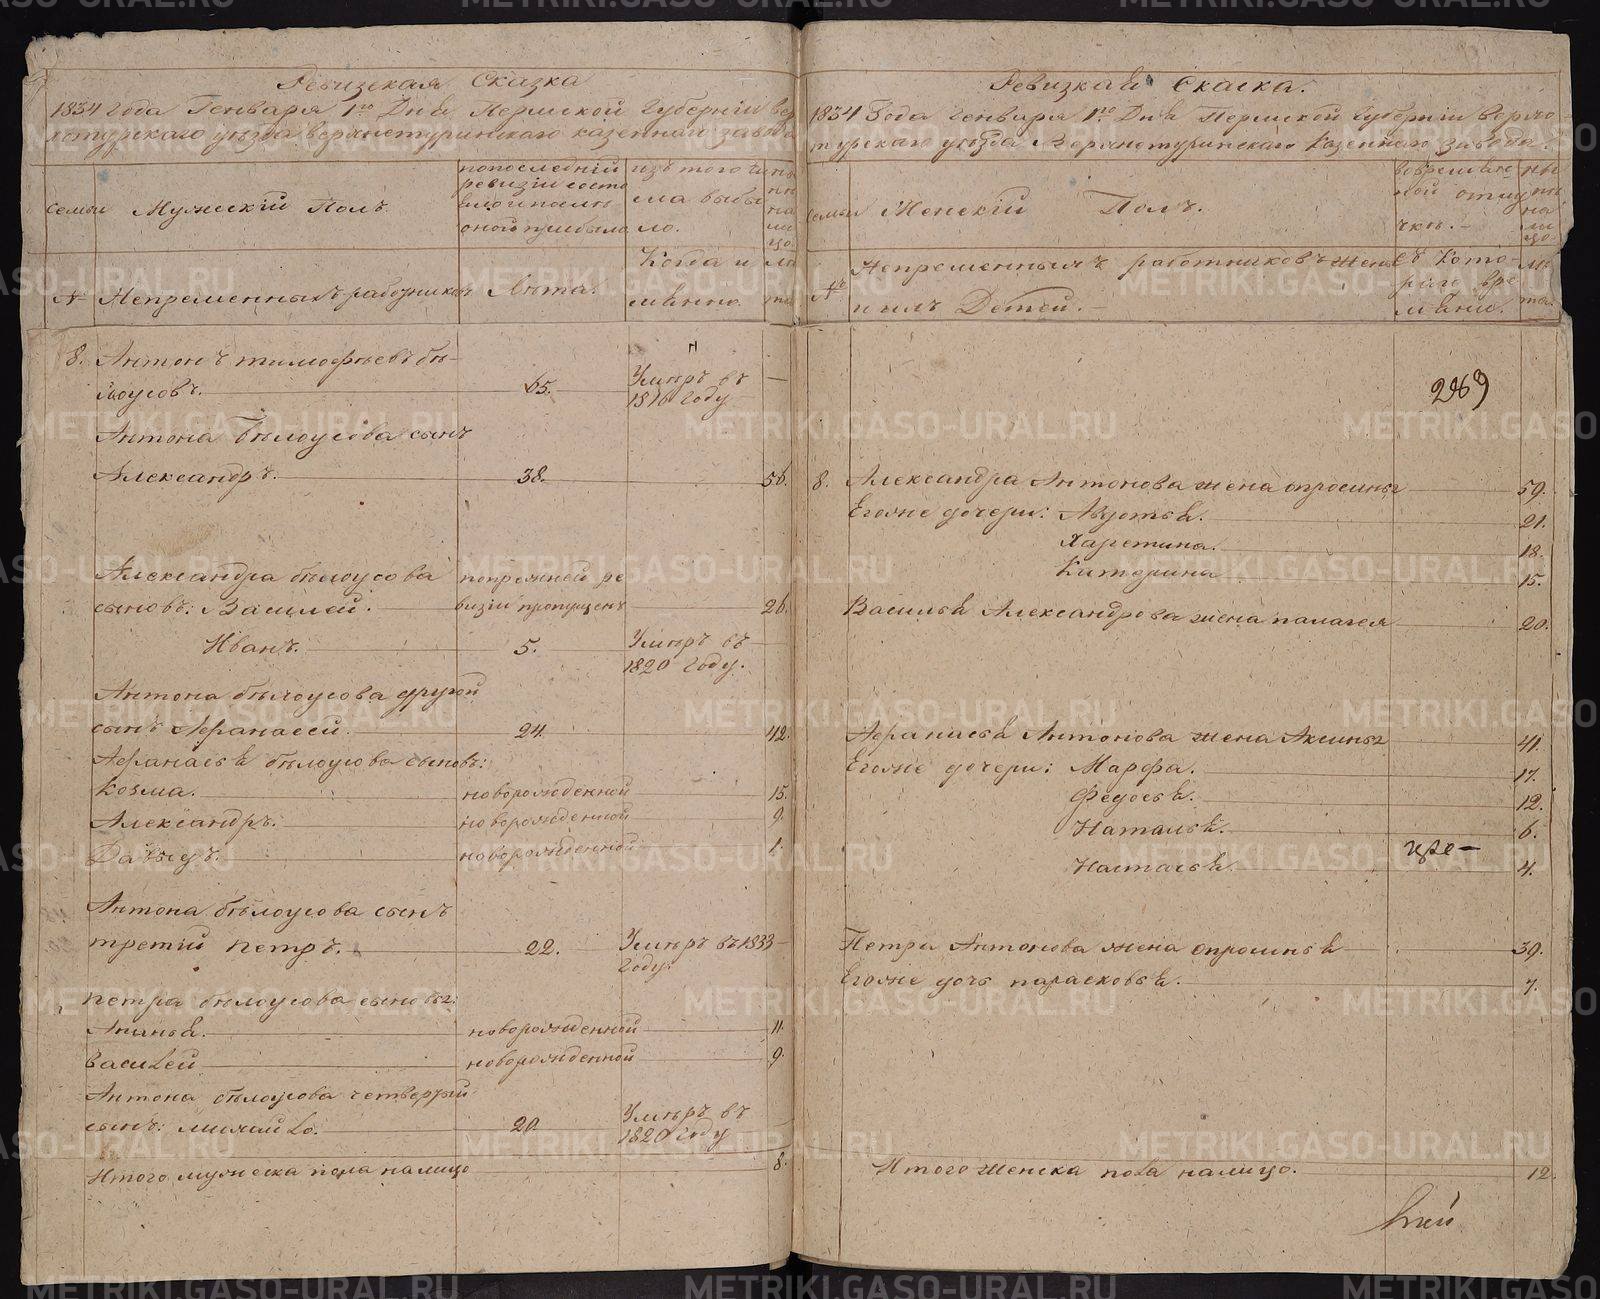 Ревизская Сказка
1834 года Генваря 1го Дня Пермской Губернiи Вер
хотурскаго уезда верхнетуринскаго казеннаго завода
семьи
Мужескiй Полъ.
попоследнiй
ревизiи состо
оногоприбыло
изъ того чи
сла выбы
ло.
ны
на
ли
цо.
№
Непременныхъ работников
Лета.
Когда и
имянно.
Ле
та
8. Антонъ тимофѣевъ бѣ-
лоусовъ. 65. Умѣръ въ
1816 Году
Антона бѣлоусова сынъ
Александръ. 38. 56.
Александра бѣлоусова попрежней ре
сыновъ: Василей. визiи пропущенъ 26.
Иванъ. 5. Умѣръ въ
1820 Году.
Антона бѣлоусова другой
сынъ Афанасей. 24. 42.
Афанасья бѣлоусова сыновъ:
Козма. новорожденной 15.
Александръ. новорожденной 9.
Давыдъ. новорожденной 1.
Антона бѣлоусова сынъ
третiй Петръ. 22. Умѣръ въ 1833
Году.
Петра бѣлоусова сыновья:
Ананья. новорожденной 11.
Василей новорожденной 9.
Антона бѣлоусова четвертый
сынъ: михайло. 20. Умѣръ въ
1820 Году
Итого мужеска пола налицо 8.
Ревизкая Скаска.
1834 Года Генваря 1го Дня Пермской Губернiи Верхо
турскаго уезда Верхнетуринскаго Казеннаго завода.
семьи
Женскiй Полъ.
вовременно
ной отлу
чкѣ.
ны
на
ли
цо.
№
Непременныхъ работниковъ жены
и ихъ Детей.
съ Кото-
раго вре
мѣни.
ле
та.
269
8. Александра Антонова жена опросинья 59.
Егоже дочери: Авдотья. 21.
Харетина. 18.
Катерина 15.
Василья Александрова жена палагея 20.
Афанасья Антонова жена Аксинья 41.
Егоже дочери: Марфа. 17.
Федосья. 12.
Наталья. 6.
Настасья. 4.
Петра Антонова жена опросинья 39.
Егоже дочь парасковья. 7.
Итого женска пола налицо. 12.
METRIKI.GASO-URAL.RU